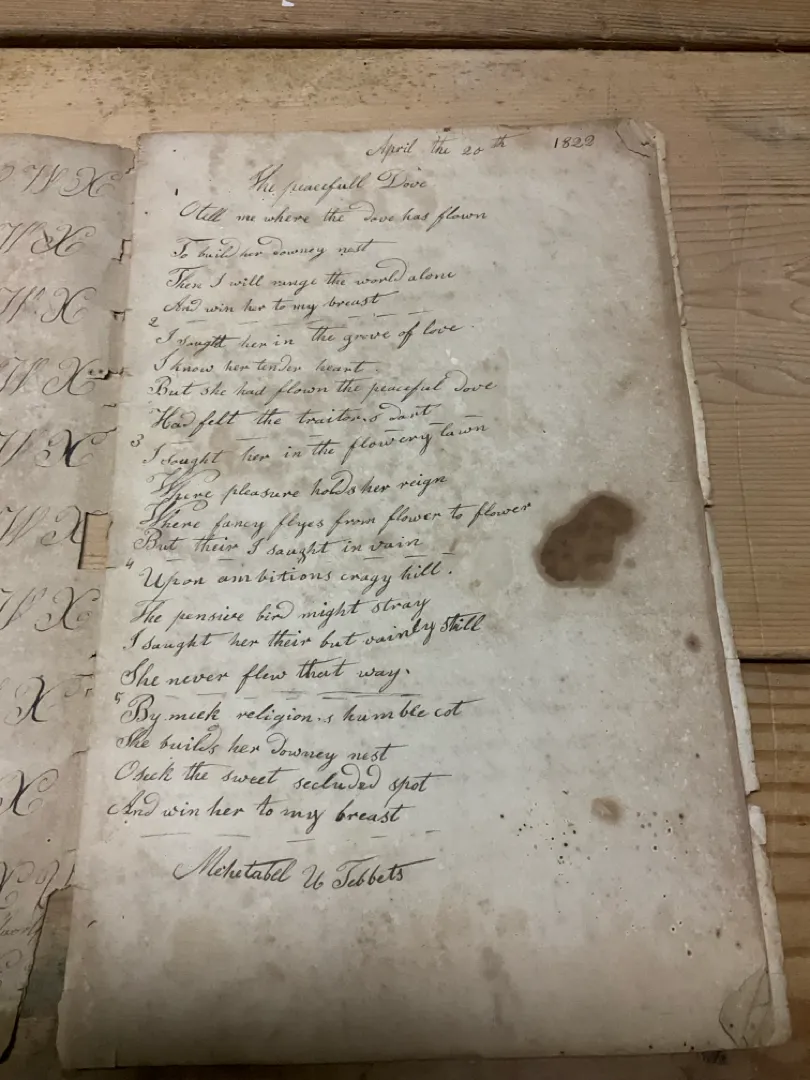 W X
W X
W X
W X
W X
W X
W X
X
X
April the 20 th 1822
The peacefull Dove
1 O tell me where the dove has flown
To build her downey nest
Then I will range the world alone
And win her to my breast
2
I sought her in the grove of love
I know her tender heart.
But she had flown the peaceful dove
Had felt the traitor,s dart
3 I sought her in the flowery lawn
Where pleasure holds her reign
Where fancy flyes from flower to flower
But their I saught in vain
4 Upon ambitions cragy hill.
The pensive bird might stray
I saught her their but vainly still
She never flew that way.
5 By meek religion,s humble cot
She builds her downey nest
O seek the sweet secluded spot
And win her to my breast
Mehetabel Tebbets